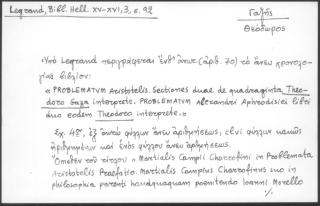 Legrand, Bibl. Hell. XV-XVI, 3, σ. 92
Γαζῆς
Θεόδωρος
Ὑπὸ Legrand περιγράφεται ἐνθ' ἄνωτ. (ἀρθ. 70) τὸ ἄνευ χρονολο-
γίας βιβλίον:
« PROBLEMATUM Aristotelis. Sectiones duae de quadraginta, Theo-
doro Gaza interprete. PROBLEMATUM Alexandri Aphrodisiei libri
duo eodem Theodoro interprete.»
Σχ. 4°, ἐξ ἄνευ ἀριθμήσεως,
ἀριθμημένων καὶ ἑνὸς φύλλου ἄνευ ἀριθμήσεως.
Ὄπισθεν τοῦ τίτλου « Martialis Campii Charrofini in Problemata
Aristotelis Praefatio. Martialis Campius Charrofinus suo in
philosophia parenti haudquaquam poenitendo Ioanni Morello